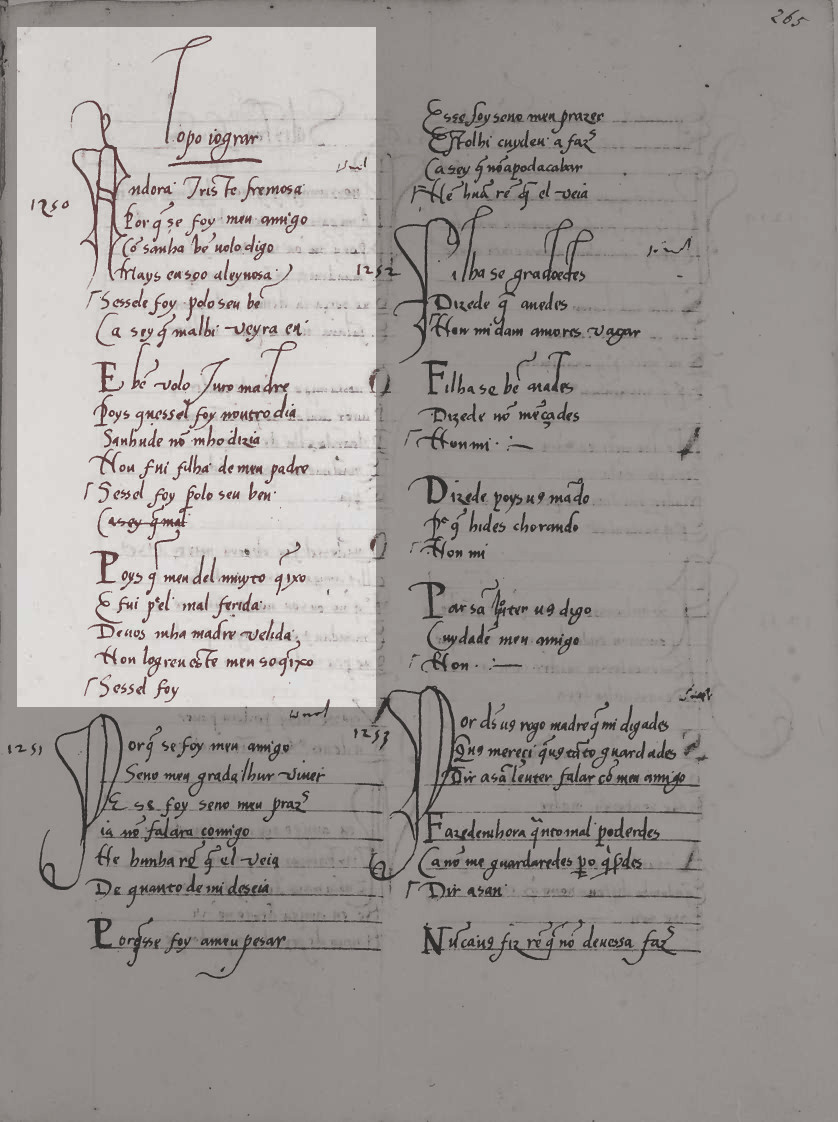 265
Topo iograr
1250
Andora Triste fremosa
Por q̃ se foy meu amigo
Cõ sanha bẽ uolo digo
Mays ensoo aleyuosa
Sessele foy polo seu bẽ
Ca sey q̃ mal lhi ueyra en
E bẽ volo Juro madre
Poys quessel foy noutro dia
Sanhude nõ mho dizia
Nou fui filha de meu padre
Sessel foy polo seu ben
Ca sey q̃ mal
Poys q̃ meu del muyto q̃ixo
E fui p el mal ferida
De uos mha madre velida
Non logreu este meu soq̃ixo
Sessel foy
1251
Porq̃ se foy meu amigo
Seno meu grad alhur viuer
E se foy seno meu praz
ia nõ falara comigo
Ne hunha rẽ q̃ el veia
De quanto de mi deseia
Porq̃sse foy a meu pesar
Esse foy seno meu prazer
E tolhi cuydeu a faz
Ca sey q̃ nõ apodacabar
Ne hũa rẽ q̃ el veia
1252
Filha se gradoedes
Dizede q̃ auedes
Non mi dam amores vagar
Filha se bẽ aiades
Dizede nõ mẽçades
Non mi
Dizede poys uꝯ mãdo
Por q̃ hides chorando
Non mi
Par sã leuter uꝯ digo
Cuydade meu amigo
Non
1253
Por ds uꝯ rogo madre q̃ mi digades
Que mereçi q̃ uꝯ tãto guardades
Dir a sã leuter falar cõ meu amigo
Fazedemhora q̃nto mal poderdes
Ca nõ me guardaredes po q̃
Dir a san
Nũca uꝯ fiz rẽ q̃ nõ deuessa faz